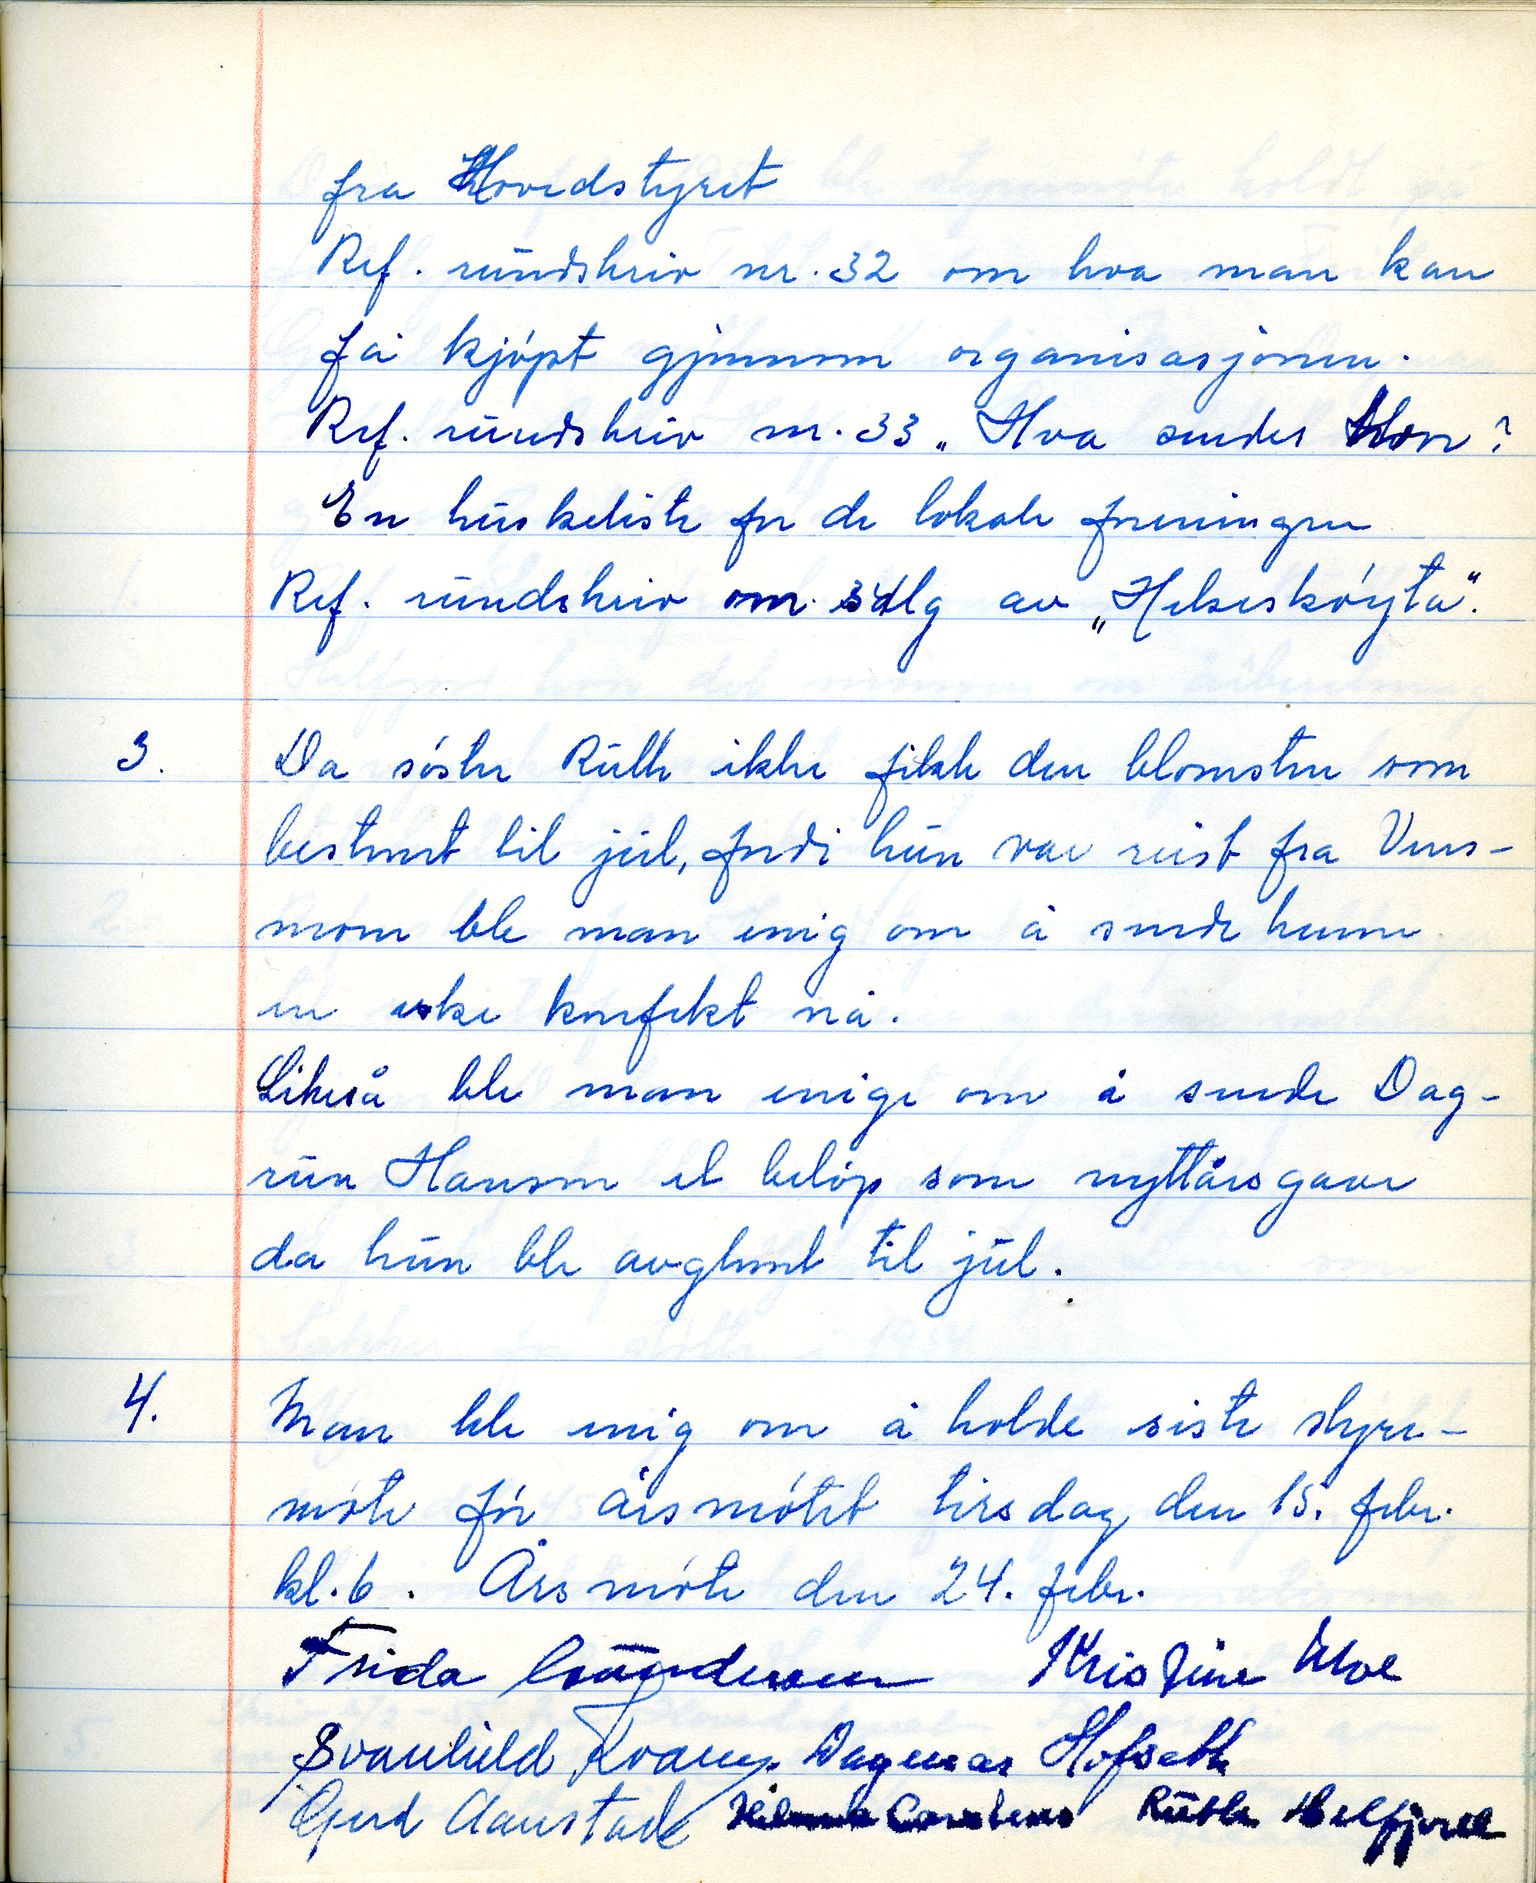 fra Hovedstyret
Ref. rundskriv nr. 32 om hva man kan
få kjøpt gjennom organisasjonen.
Ref. rundskriv nr. 33 „Hva sendes
En huskeliste for de lokale foreningene
Ref. rundskriv om salg av „Helseskøyta".
3. Da søster Ruth ikke fikk den blomsten som
bestemt til jul, fordi hun var reist fra Vens-
mom ble man enig om å sende henne
en eske konfekt nå.
Likeså ble man enige om å sende Dag-
run Hansen et beløp som nyttårsgave
da hun ble avglemt til jul.
4. Man ble enig om å holde siste styre-
møte før årsmøtet tirsdag den 15. febr.
kl. 6. Årsmøte den 24. febr.
Frida Gundersen Kristine
Svanhild Kvamme Dagmar Hofseth
Gerd Aarstad Ruth Helfjord